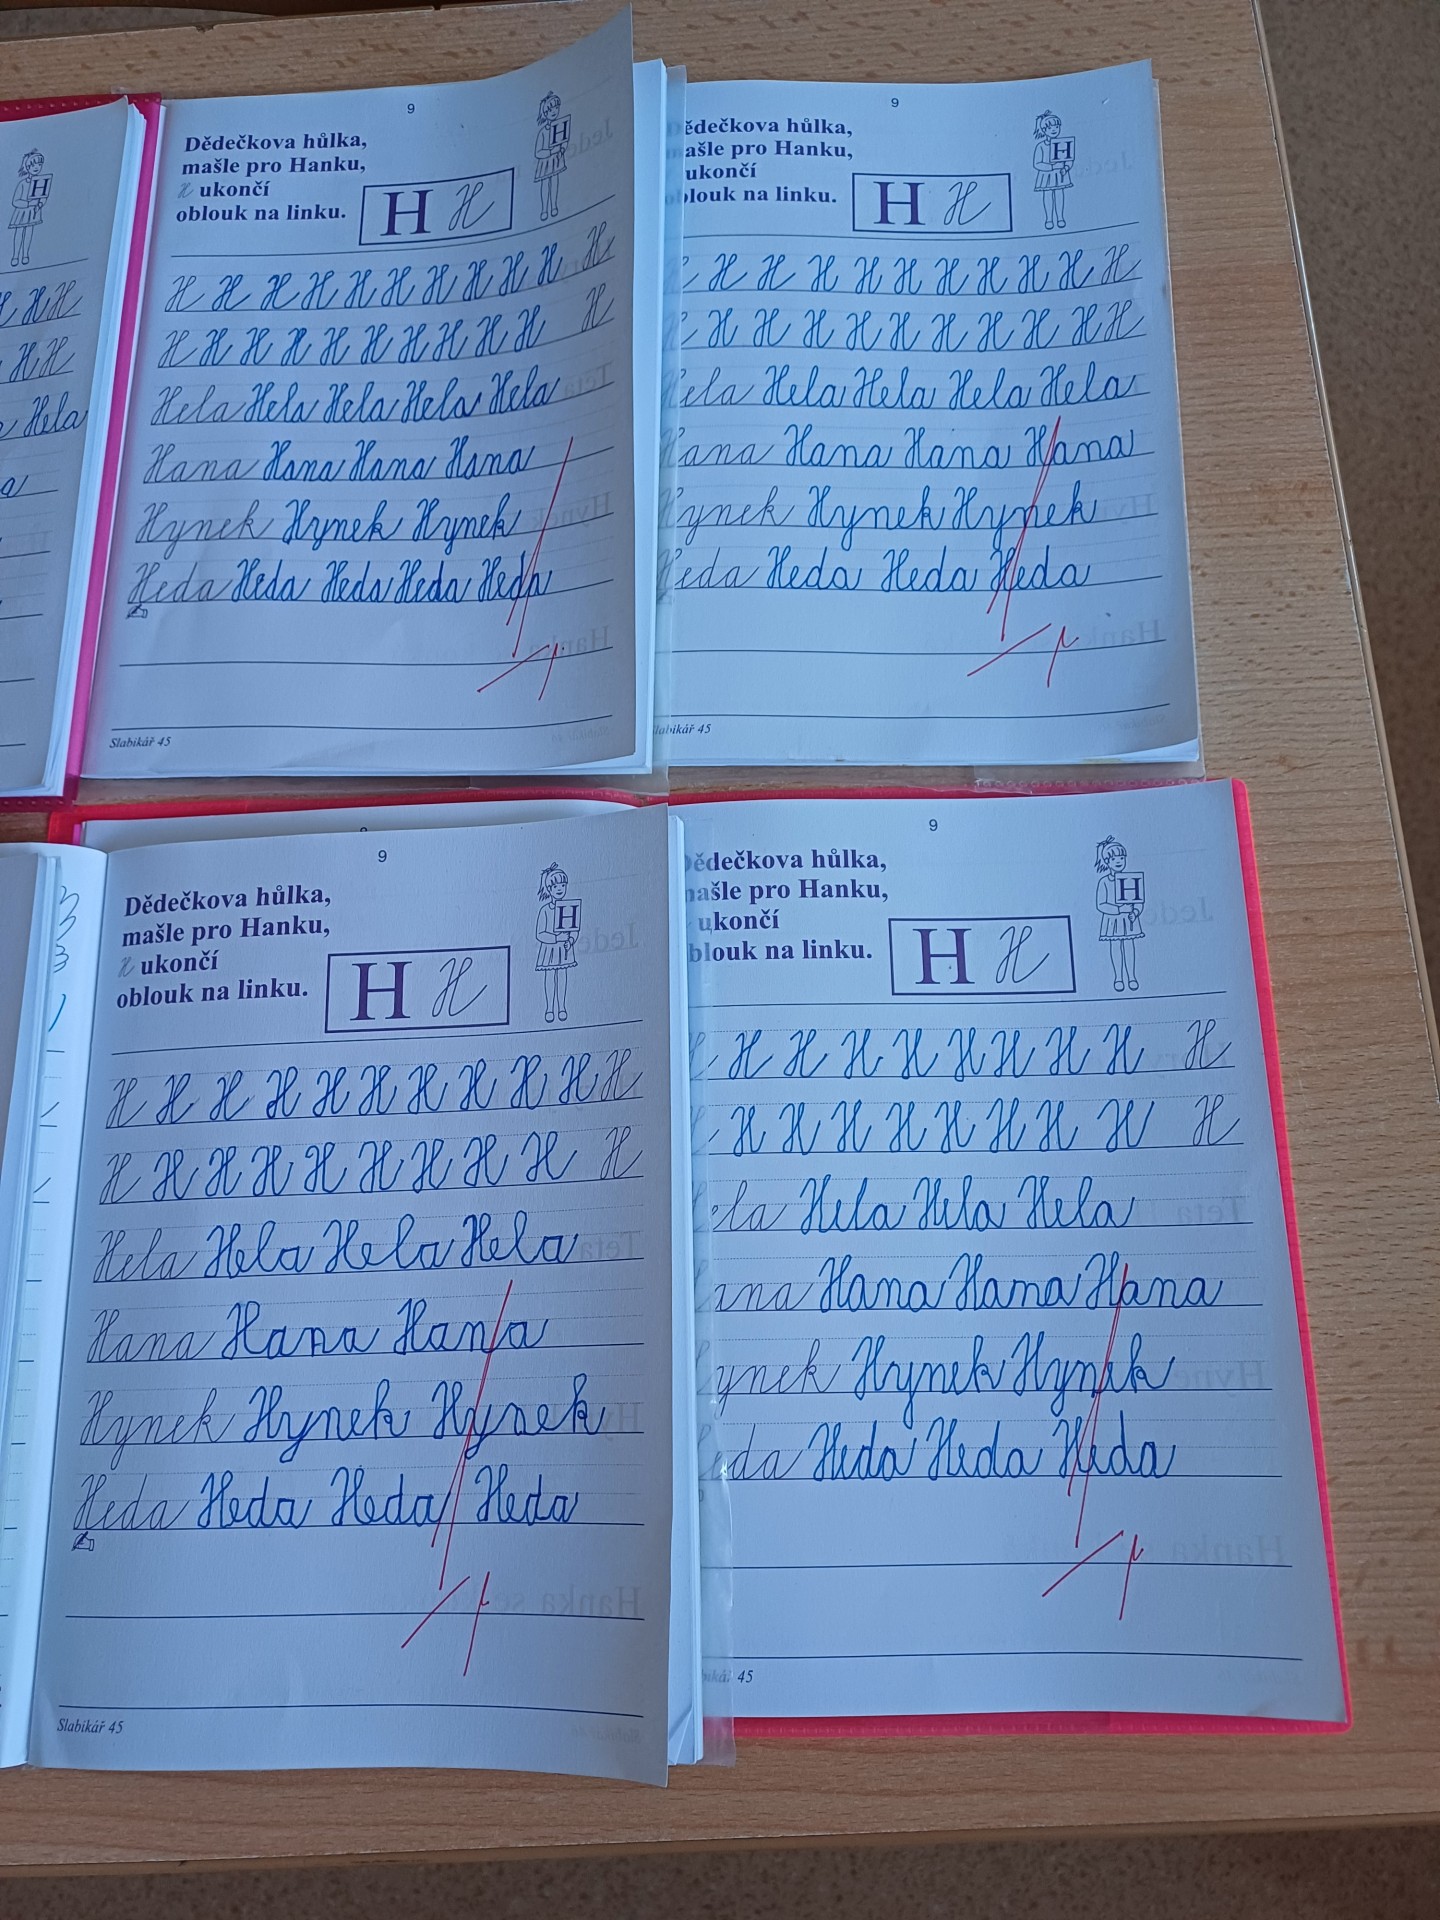 H
H H H
H H
Hela
9
Dědečkova hůlka,
mašle pro Hanku,
H ukončí
oblouk na linku.
H H
H
H H H H H H H H H H H
H H H H H H H H H H H
Hela Hela Hela Hela Hela
Hana Hana Hana Hana
Hynek Hynek Hynek
Heda Heda Heda Heda Heda
Slabikář 45
9
ědečkova hůlka,
ašle pro Hanku,
ukončí
blouk na linku.
H H
H
H H H H H H H H H H
H H H H H H H H H H
ela Hela Hela Hela Hela
ana Hana Hana Hana
ynek Hynek Hynek
eda Heda Heda Heda
labikář 45
9
Dědečkova hůlka,
mašle pro Hanku,
H ukončí
oblouk na linku.
H H
H
H H H H H H H H H H H
H H H H H H H H H H
Hela Hela Hela Hela
Hana Hana Hana
Hynek Hynek Hynek
Heda Heda Heda Heda
Slabikář 45
9
ědečkova hůlka,
ašle pro Hanku,
ukončí
blouk na linku.
H H
H
H H H H H H H H H
H H H H H H H H H
ela Hela Hela Hela
ana Hana Hana Hana
ynek Hynek Hynek
eda Heda Heda Heda
45